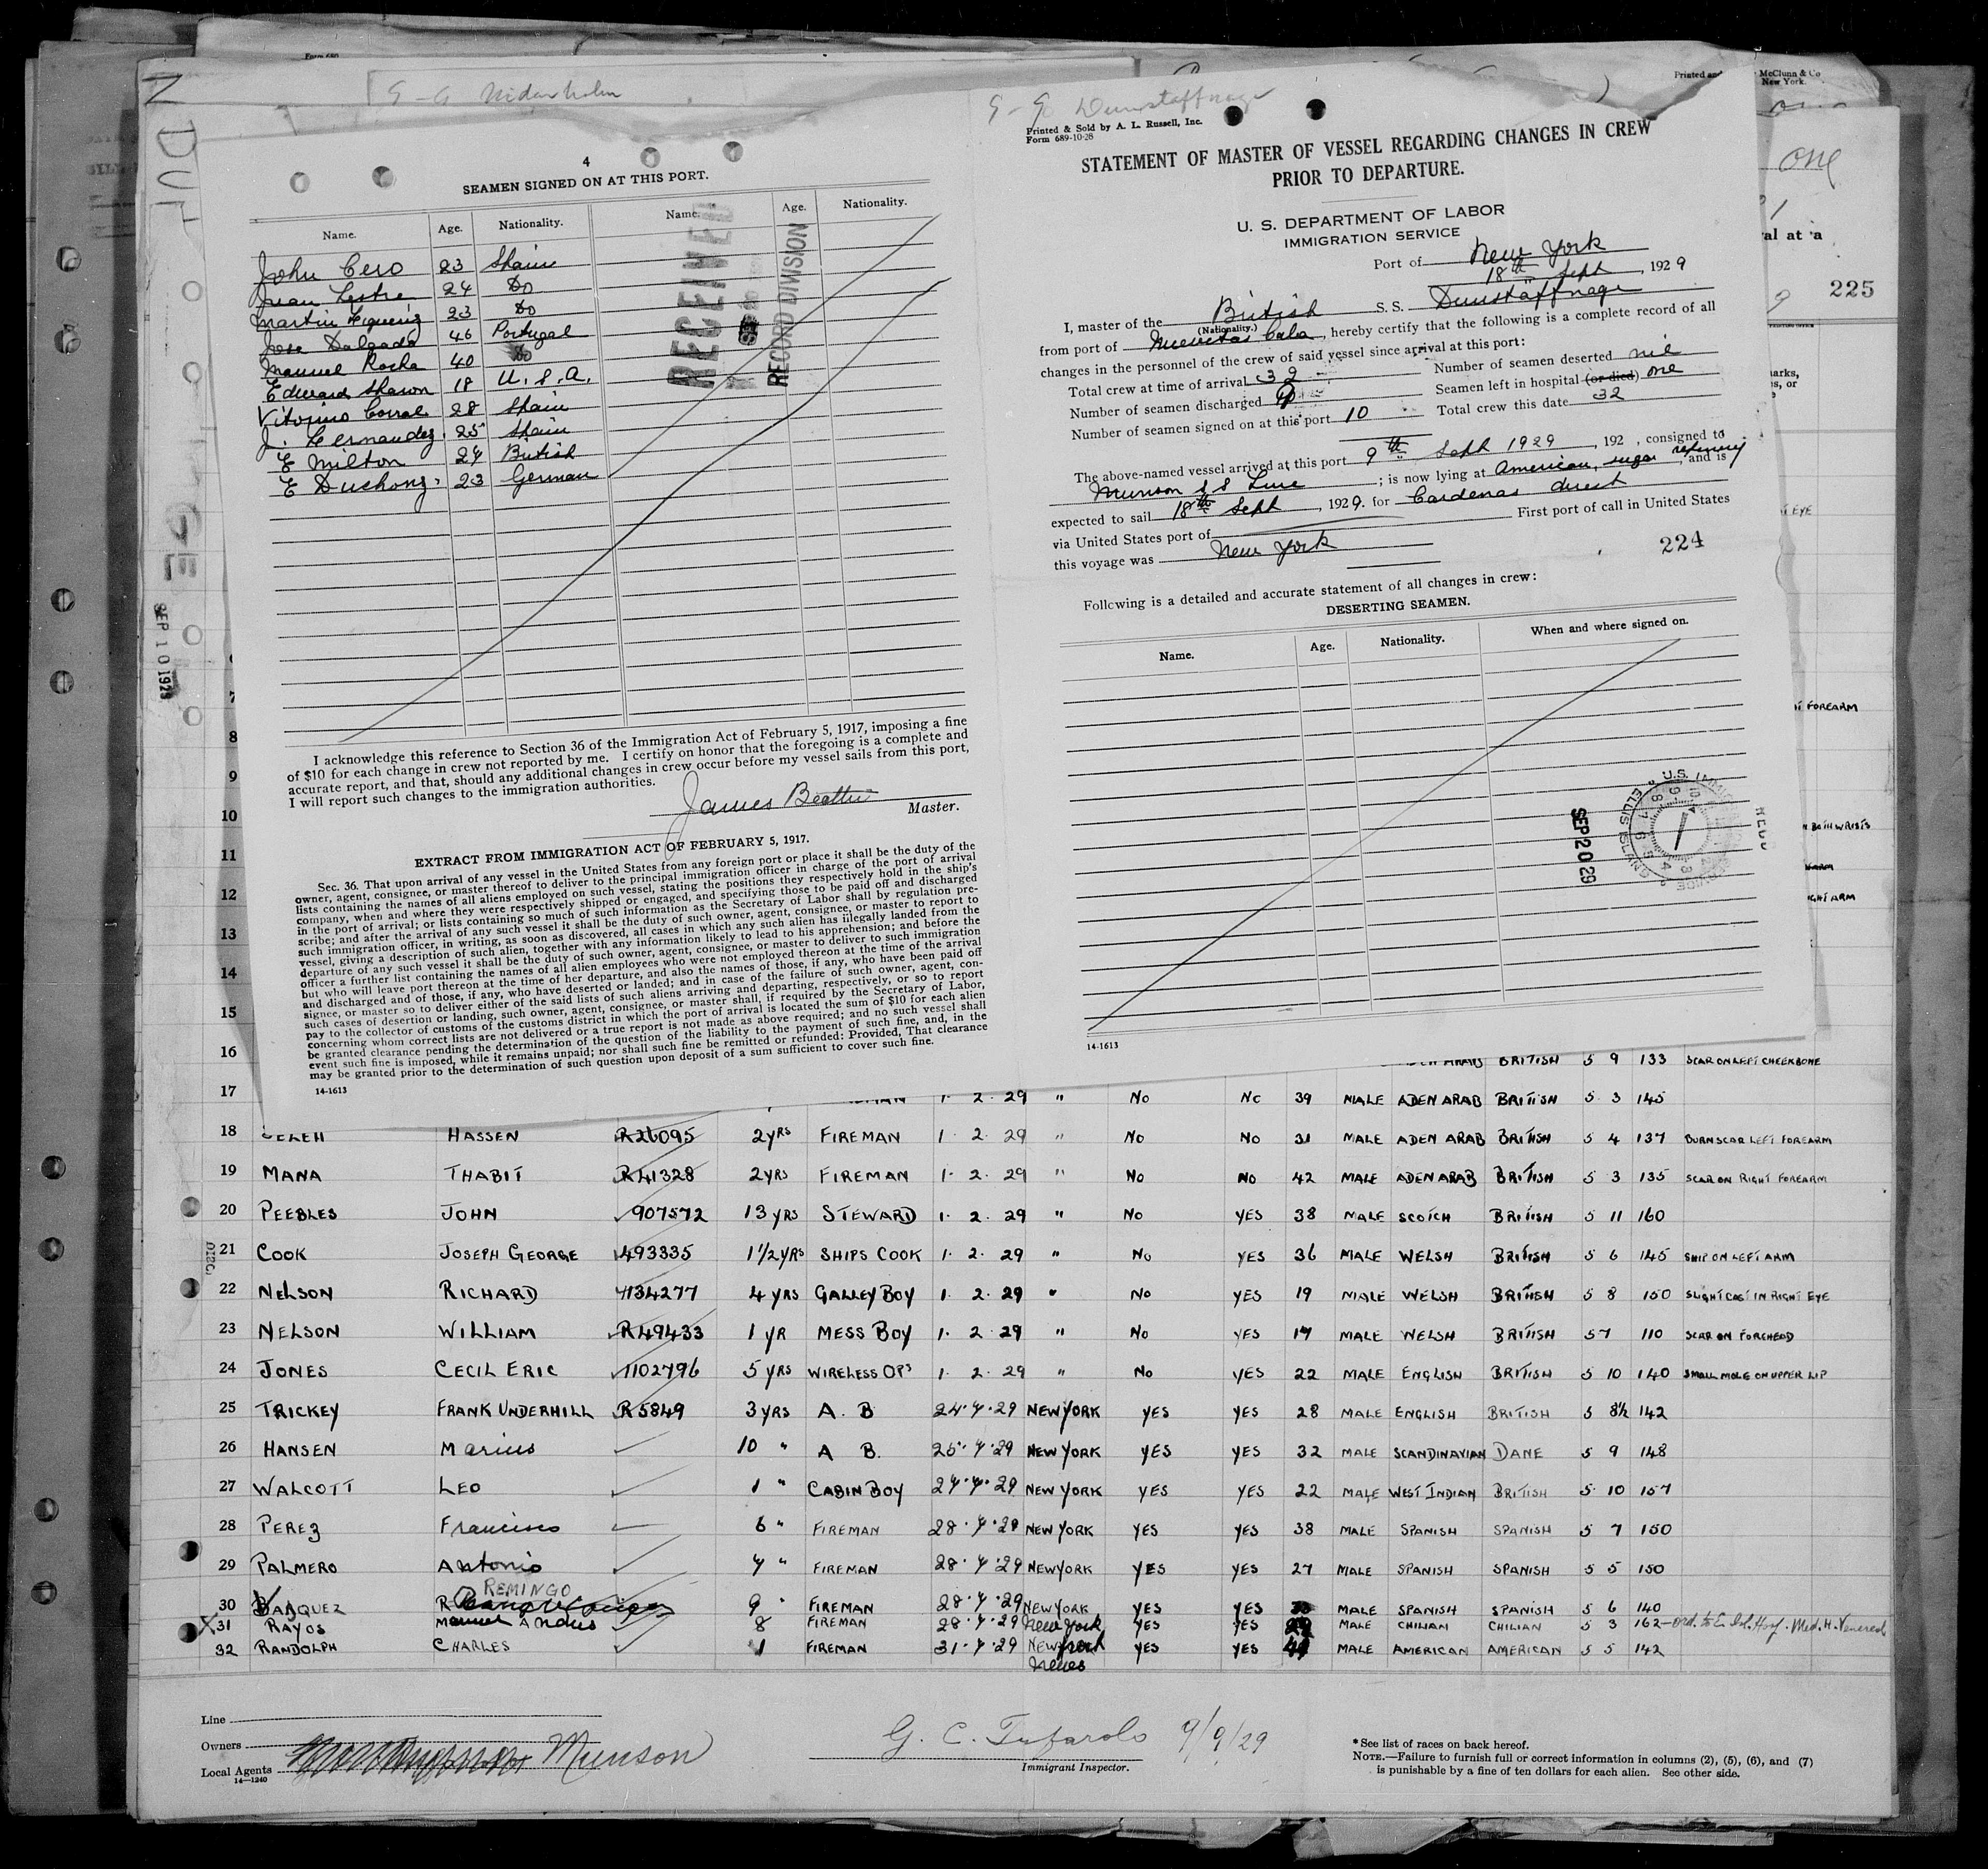 Form 689
Printed and
McClunn & Co
New York.
G-G
G-G Dunstaffnage
one
225
al at a
4
SEAMEN SIGNED ON AT THIS PORT.
Name. Age. Nationality. Name. Age. Nationality.
John Cero 23 Spain
Juan 24 Do
Martin 23 Do
Jose Dalgado 46 Portugal
Manuel Rocha 40 Do
Edward Sharon 18 U.S.A.
Vitorino Corral 28 Spain
J. Fernandez. 25 Spain
E Milton 24 British
E Duchong 23 German
RECEIVED
RECORD DIVISION
I acknowledge this reference to Section 36 of the Immigration Act of February 5, 1917, imposing a fine
of $10 for each change in crew not reported by me. I certify on honor that the foregoing is a complete and
accurate report, and that, should any additional changes in crew occur before my vessel sails from this port,
I will report such changes to the immigration authorities.
James Beattie
Master.
EXTRACT FROM IMMIGRATION ACT OF FEBRUARY 5, 1917.
Sec. 36. That upon arrival of any vessel in the United States from any foreign port or place it shall be the duty of the
owner, agent, consignee, or master thereof to deliver to the principal immigration officer in charge of the port of arrival
lists containing the names of all aliens employed on such vessel, stating the positions they respectively hold in the ship's
company, when and where they were respectively shipped or engaged, and specifying those to be paid off and discharged
in the port of arrival; or lists containing so much of such information as the Secretary of Labor shall by regulation pre-
scribe; and after the arrival of any such vessel it shall be the duty of such owner, agent, consignee, or master to report to
such immigration officer, in writing, as soon as discovered, all cases in which any such alien has illegally landed from the
vessel, giving a description of such alien, together with any information likely to lead to his apprehension; and before the
departure of any such vessel it shall be the duty of such owner, agent, consignee, or master to deliver to such immigration
officer a further list containing the names of all alien employees who were not employed thereon at the time of the arrival
but who will leave port thereon at the time of her departure, and also the names of those, if any, who have been paid off
and discharged and of those, if any, who have deserted or landed; and in case of the failure of such owner, agent, con-
signee, or master so to deliver either of the said lists of such aliens arriving and departing, respectively, or so to report
such cases of desertion or landing, such owner, agent, consignee, or master shall, if required by the Secretary of Labor,
pay to the collector of customs of the customs district in which the port of arrival is located the sum of $10 for each alien
concerning whom correct lists are not delivered or a true report is not made as above required; and no such vessel shall
be granted clearance pending the determination of the question of the liability to the payment of such fine, and, in the
event such fine is imposed, while it remains unpaid; nor shall such fine be remitted or refunded: Provided, That clearance
may be granted prior to the determination of such question upon deposit of a sum sufficient to cover such fine.
14-1613
Printed & Sold by A. L. Russell, Inc.
Form 689-10-28
STATEMENT OF MASTER OF VESSEL REGARDING CHANGES IN CREW
PRIOR TO DEPARTURE.
U. S. DEPARTMENT OF LABOR
IMMIGRATION SERVICE
Port of New York
18th Sept, 1929
I, master of the British S. S. Dunstaffnage
(Nationality.)
from port of Nuevitas Cuba, hereby certify that the following is a complete record of all
changes in the personnel of the crew of said vessel since arrival at this port:
Total crew at time of arrival 32 Number of seamen deserted nil
Number of seamen discharged 9 Seamen left in hospital (or died) one
Number of seamen signed on at this port 10 Total crew this date 32
The above-named vessel arrived at this port 9th Sept 1929, 192 , consigned to
Munson S S Line; is now lying at American sugar refinery, and is
expected to sail 18th Sept, 1929. for Cardenas direct
via United States port of First port of call in United States
this voyage was New York
224
Following is a detailed and accurate statement of all changes in crew:
DESERTING SEAMEN.
Name. Age. Nationality. When and where signed on.
SEP 20 29
14-1613
SEP 10 1929
7
8
9
10
11
12
13
14
15
16 ARAB BRITISH 5 9 133 SCAR ON LEFT CHEEKBONE
17 1. 2. 29 " No No 39 MALE ADEN ARAB BRITISH 5 3 145
18 HASSEN R26095 2YRS FIREMAN 1. 2. 29 " No No 31 MALE ADEN ARAB BRITISH 5 4 137 BURN SCAR LEFT FOREARM
19 MANA THABIT R41328 2YRS FIREMAN 1. 2. 29 " No No 42 MALE ADEN ARAB BRITISH 5 3 135 SCAR ON RIGHT FOREARM
20 PEEBLES JOHN 907572 13 YRS STEWARD 1. 2. 29 " No YES 38 MALE SCOTCH BRITISH 5 11 160
21 COOK JOSEPH GEORGE 493335 1 1/2 YRS SHIPS COOK 1. 2. 29 " No YES 36 MALE WELSH BRITISH 5 6 145 SHIP ON LEFT ARM
22 NELSON RICHARD 1134277 4 YRS GALLEY BOY 1. 2. 29 " No YES 19 MALE WELSH BRITISH 5 8 150 SLIGHT CAST IN RIGHT EYE
23 NELSON WILLIAM R49433 1 YR MESS BOY 1. 2. 29 " No YES 17 MALE WELSH BRITISH 5 7 110 SCAR ON FOREHEAD
24 JONES CECIL ERIC 1102796 5 YRS WIRELESS OPR 1. 2. 29 " No YES 22 MALE ENGLISH BRITISH 5 10 140 SMALL MOLE ON UPPER LIP
25 TRICKEY FRANK UNDERHILL R5849 3 YRS A. B 24.7.29 NEW YORK YES YES 28 MALE ENGLISH BRITISH 5 8½ 142
26 HANSEN Marius 10 " A B. 25.7.29 NEW YORK YES YES 32 MALE SCANDINAVIAN DANE 5 9 148
27 WALCOTT LEO 1 " CABIN BOY 27.7.29 NEW YORK YES YES 22 MALE WEST INDIAN BRITISH 5 10 157
28 PEREZ Francisco 6 " FIREMAN 28.7.29 NEW YORK YES YES 38 MALE SPANISH SPANISH 5 7 150
29 PALMERO Antonio 7 " FIREMAN 28.7.29 NEW YORK YES YES 27 MALE SPANISH SPANISH 5 5 150
REMINGO
30 9 " FIREMAN 28.7.29 NEW YORK YES YES MALE SPANISH SPANISH 5 6 140
31 RAYOS Manuel 8 FIREMAN 28.7.29 New York YES YES MALE CHILIAN CHILIAN 5 3 162
32 RANDOLPH CHARLES 1 FIREMAN 31.7.29 NEW YES YES MALE AMERICAN AMERICAN 5 5 142
Line
Owners
Local Agents Munson
14-1240
G. C. Tufarolo 9/9/29
Immigrant Inspector.
*See list of races on back hereof.
NOTE.—Failure to furnish full or correct information in columns (2), (5), (6), and (7)
is punishable by a fine of ten dollars for each alien. See other side.